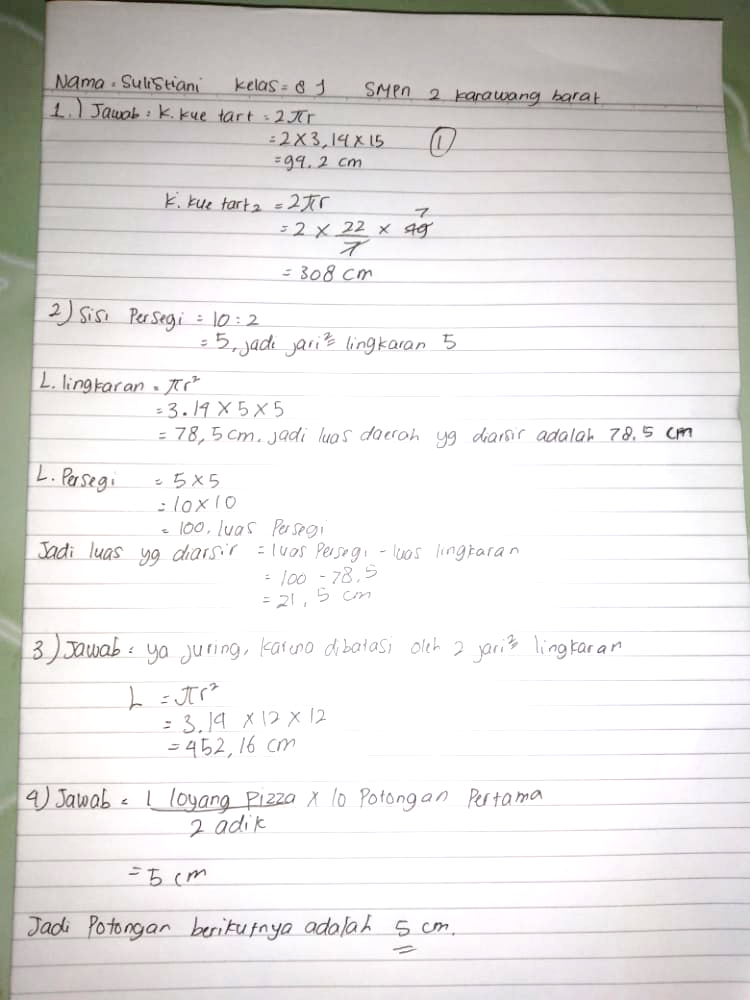 Nama = Sulistiani Kelas = 8 J SMPN 2 Karawang barat
1.) Jawab = K. kue tart = 2πr
= 2 x 3,14 x 15 ①
= 94.2 cm
K. kue tart₂ = 2πr
7
= 2 x 22/7 x 49
= 308 cm
2) Sisi Persegi = 10 : 2
= 5, jadi jari² lingkaran 5
L. lingkaran = πr²
= 3.14 x 5 x 5
= 78,5 cm. jadi luas daerah yg diarsir adalah 78.5 cm
L. Persegi = 5 x 5
= 10 x 10
= 100. luas Persegi
Jadi luas yg diarsir = luas Persegi - luas lingkaran
= 100 - 78,5
= 21,5 cm
3) Jawab = ya juring, karena dibatasi oleh 2 jari² lingkaran
L = πr²
= 3.14 x 12 x 12
= 452,16 cm
4) Jawab = 1 loyang pizza x 10 Potongan Pertama
2 adik
= 5 cm
Jadi Potongan berikutnya adalah 5 cm.